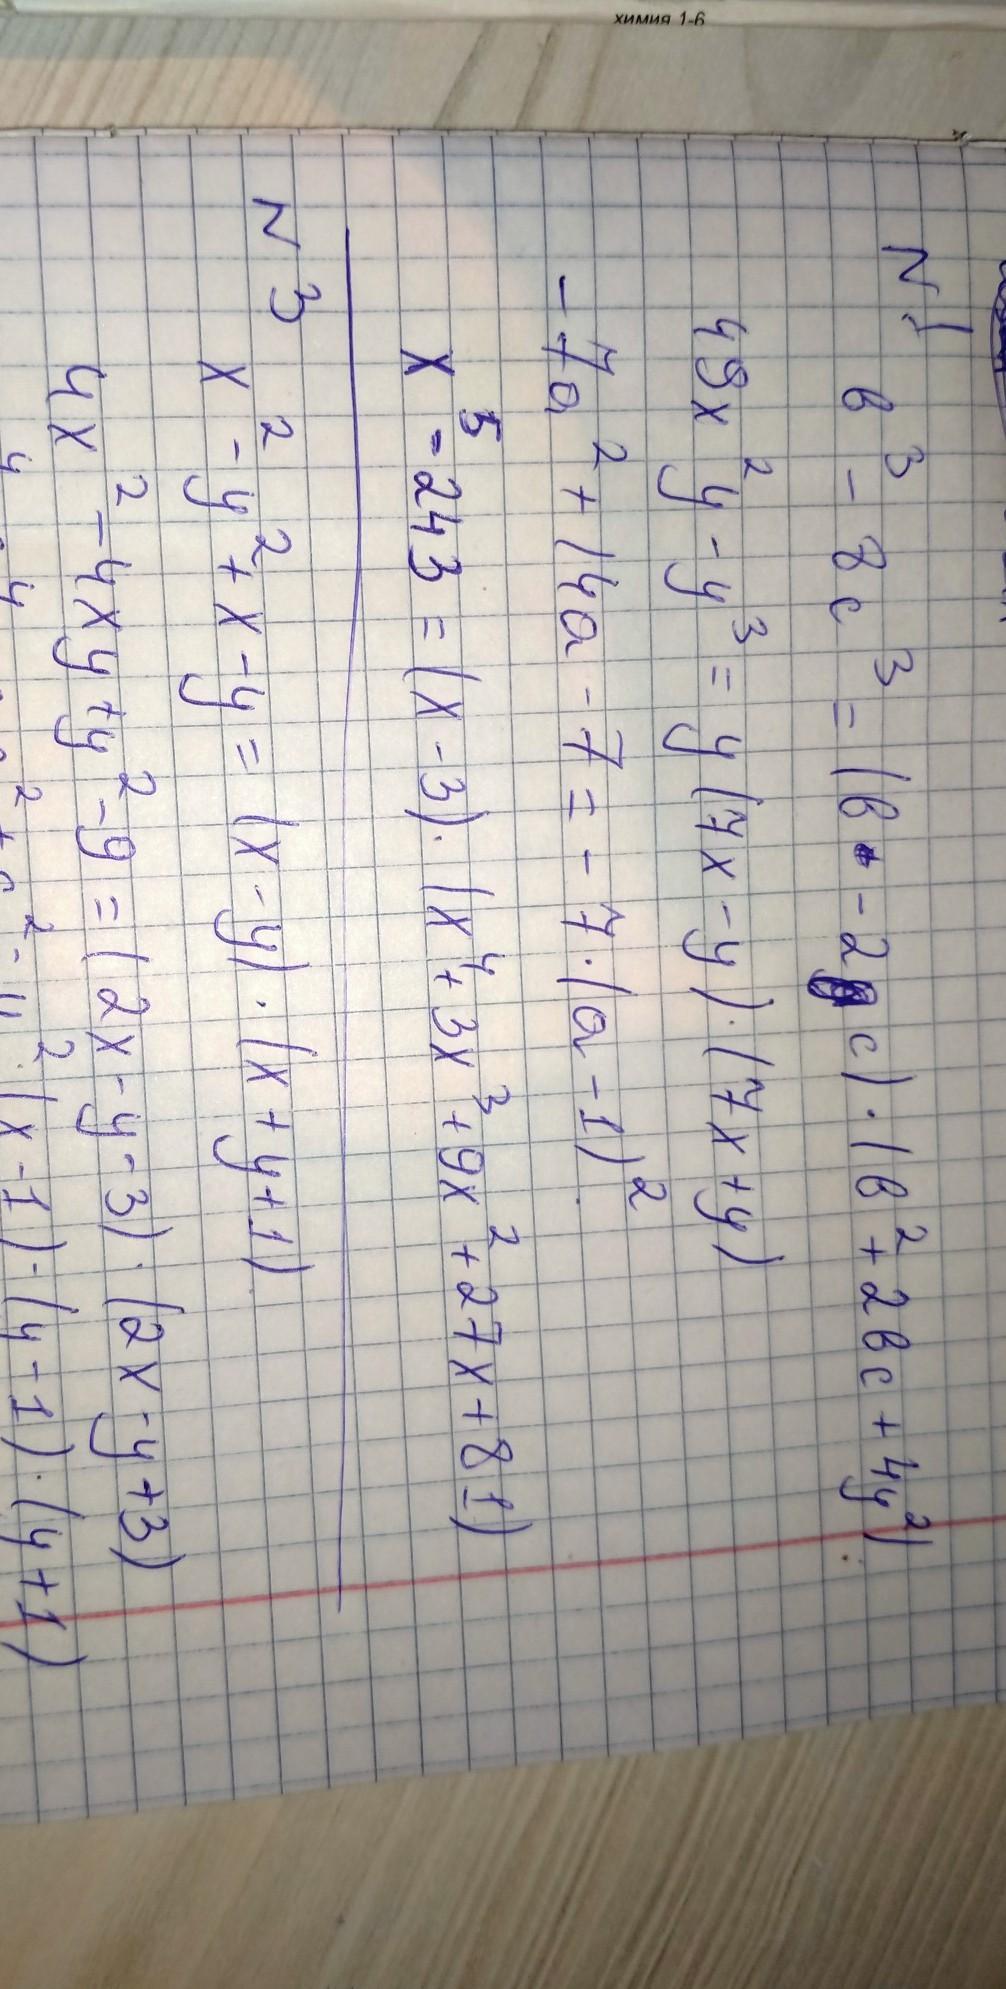 химия 1-6
N1
b³ - 8c³ = (b - 2c) · (b² + 2bc + 4y²)
49x²y - y³ = y(7x - y) · (7x + y)
-7a² + 14a - 7 = -7 · (a - 1)²
x⁵ - 243 = (x - 3) · (x⁴ + 3x³ + 9x² + 27x + 81)
N3
x² - y² + x - y = (x - y) · (x + y + 1)
4x² - 4xy + y² - 9 = (2x - y - 3) · (2x - y + 3)
(x - 1) · (y - 1) · (y + 1)